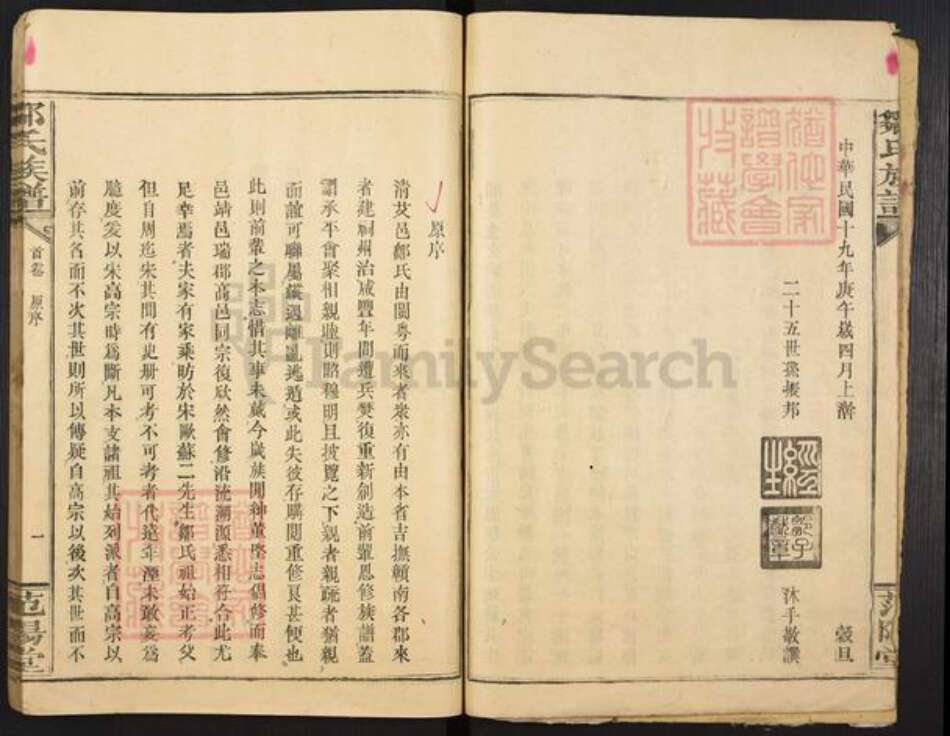 鄒氏族譜
中華民國十九年庚午歲四月上澣
穀旦
二十五世孫振邦
沐手敬譔
范陽堂
猶他家譜學會收藏
原序
清芠邑鄒氏由閩粤而來者衆亦有由本省吉撫贛南各郡來
者建祠州治咸豐年間遭兵燹復重新創造前輩思修族譜蓋
謂承平會聚相親
則昭穆明且披覽之下親者親疏者猶親
而誼可聯屬縱遇離亂逃遁或此失彼存購閱重修良甚便也
此則前輩之本志惜其事未蕆今歲族閒紳董
志倡修而奉
邑靖邑瑞郡高邑同宗復欣然會修沿流溯源悉相符合此尤
足幸焉者夫家有家乘昉於宋歐蘇二先生鄒氏祖始正考父
但自周迄宋其間有史册可考不可考者代遠年湮未敢妄爲
臆度爰以宋高宗時爲斷凡本支諸祖其始列派者自高宗以
前存其名而不次其世則所以傳疑自高宗以後次其世而不
鄒氏族譜
首卷
原序
一
范陽堂
FamilySearch